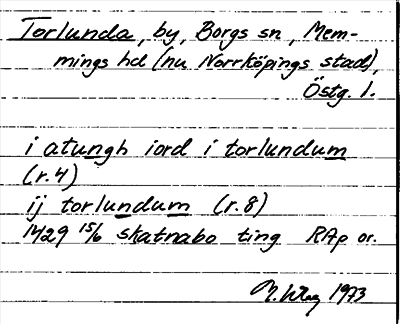 Torlunda, by, Borgs sn, Mem-
mings hd (nu Norrköpings stad),
Östg. l.
i atungh iord i torlundum
(r.4)
ij torlundum (r.8)
1429 15/6 skatnabo ting RAp or.
1973